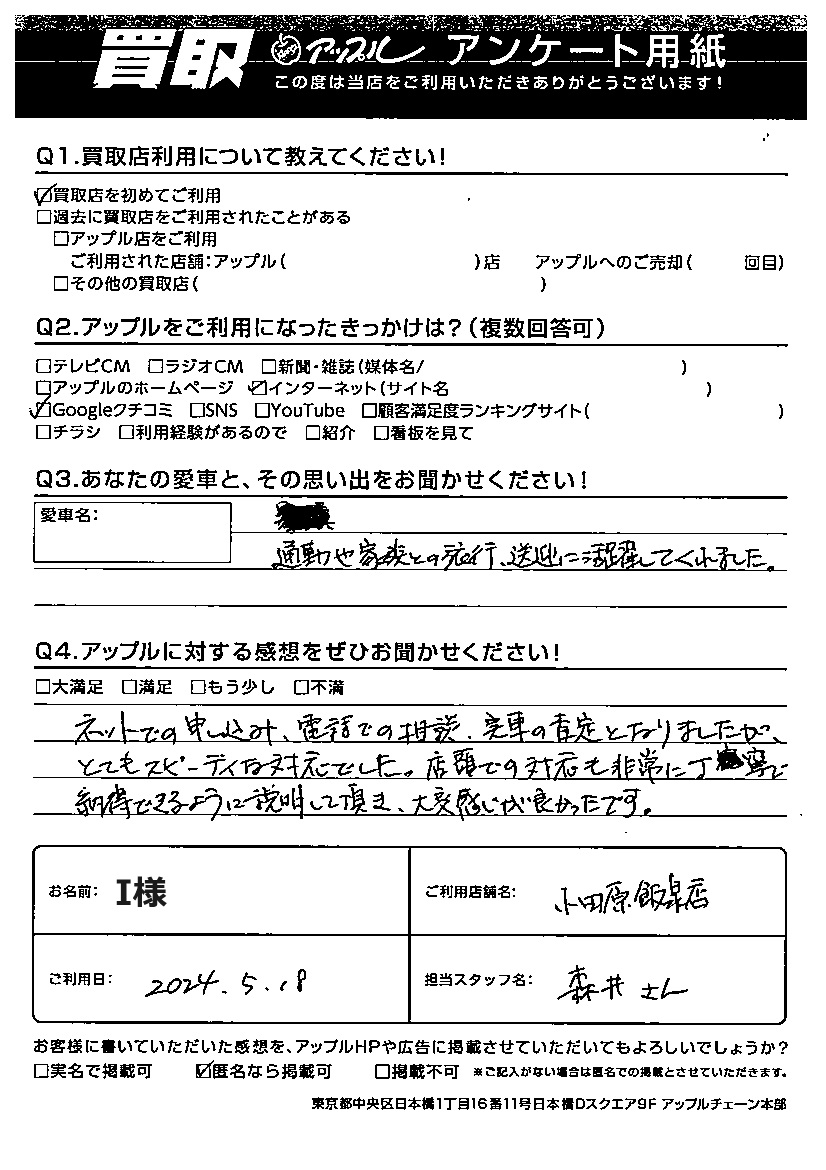 買取 アップル アンケート用紙
この度は当店をご利用いただきありがとうございます!
Q1.買取店利用について教えてください!
☑買取店を初めてご利用
□過去に買取店をご利用されたことがある
□アップル店をご利用
ご利用された店舗:アップル( )店 アップルへのご売却( 回目)
□その他の買取店( )
Q2.アップルをご利用になったきっかけは?(複数回答可)
□テレビCM □ラジオCM □新聞・雑誌(媒体名/ )
□アップルのホームページ ☑インターネット(サイト名 )
☑Googleクチコミ □SNS □YouTube □顧客満足度ランキングサイト( )
□チラシ □利用経験があるので □紹介 □看板を見て
Q3.あなたの愛車と、その思い出をお聞かせください!
愛車名:
通勤や家族との旅行、送迎に活躍してくれました。
Q4.アップルに対する感想をぜひお聞かせください!
□大満足 □満足 □もう少し □不満
ネットでの申し込み、電話での相談、実車の査定となりましたが、
とてもスピーディな対応でした。店頭での対応も非常に丁寧で
納得できるように説明して頂き、大変感じが良かったです。
お名前: I様 ご利用店舗名: 小田原飯泉店
ご利用日: 2024.5.18 担当スタッフ名: 森井さん
お客様に書いていただいた感想を、アップルHPや広告に掲載させていただいてもよろしいでしょうか?
□実名で掲載可 ☑匿名なら掲載可 □掲載不可 ※ご記入がない場合は匿名での掲載とさせていただきます。
東京都中央区日本橋1丁目16番11号日本橋Dスクエア9F アップルチェーン本部